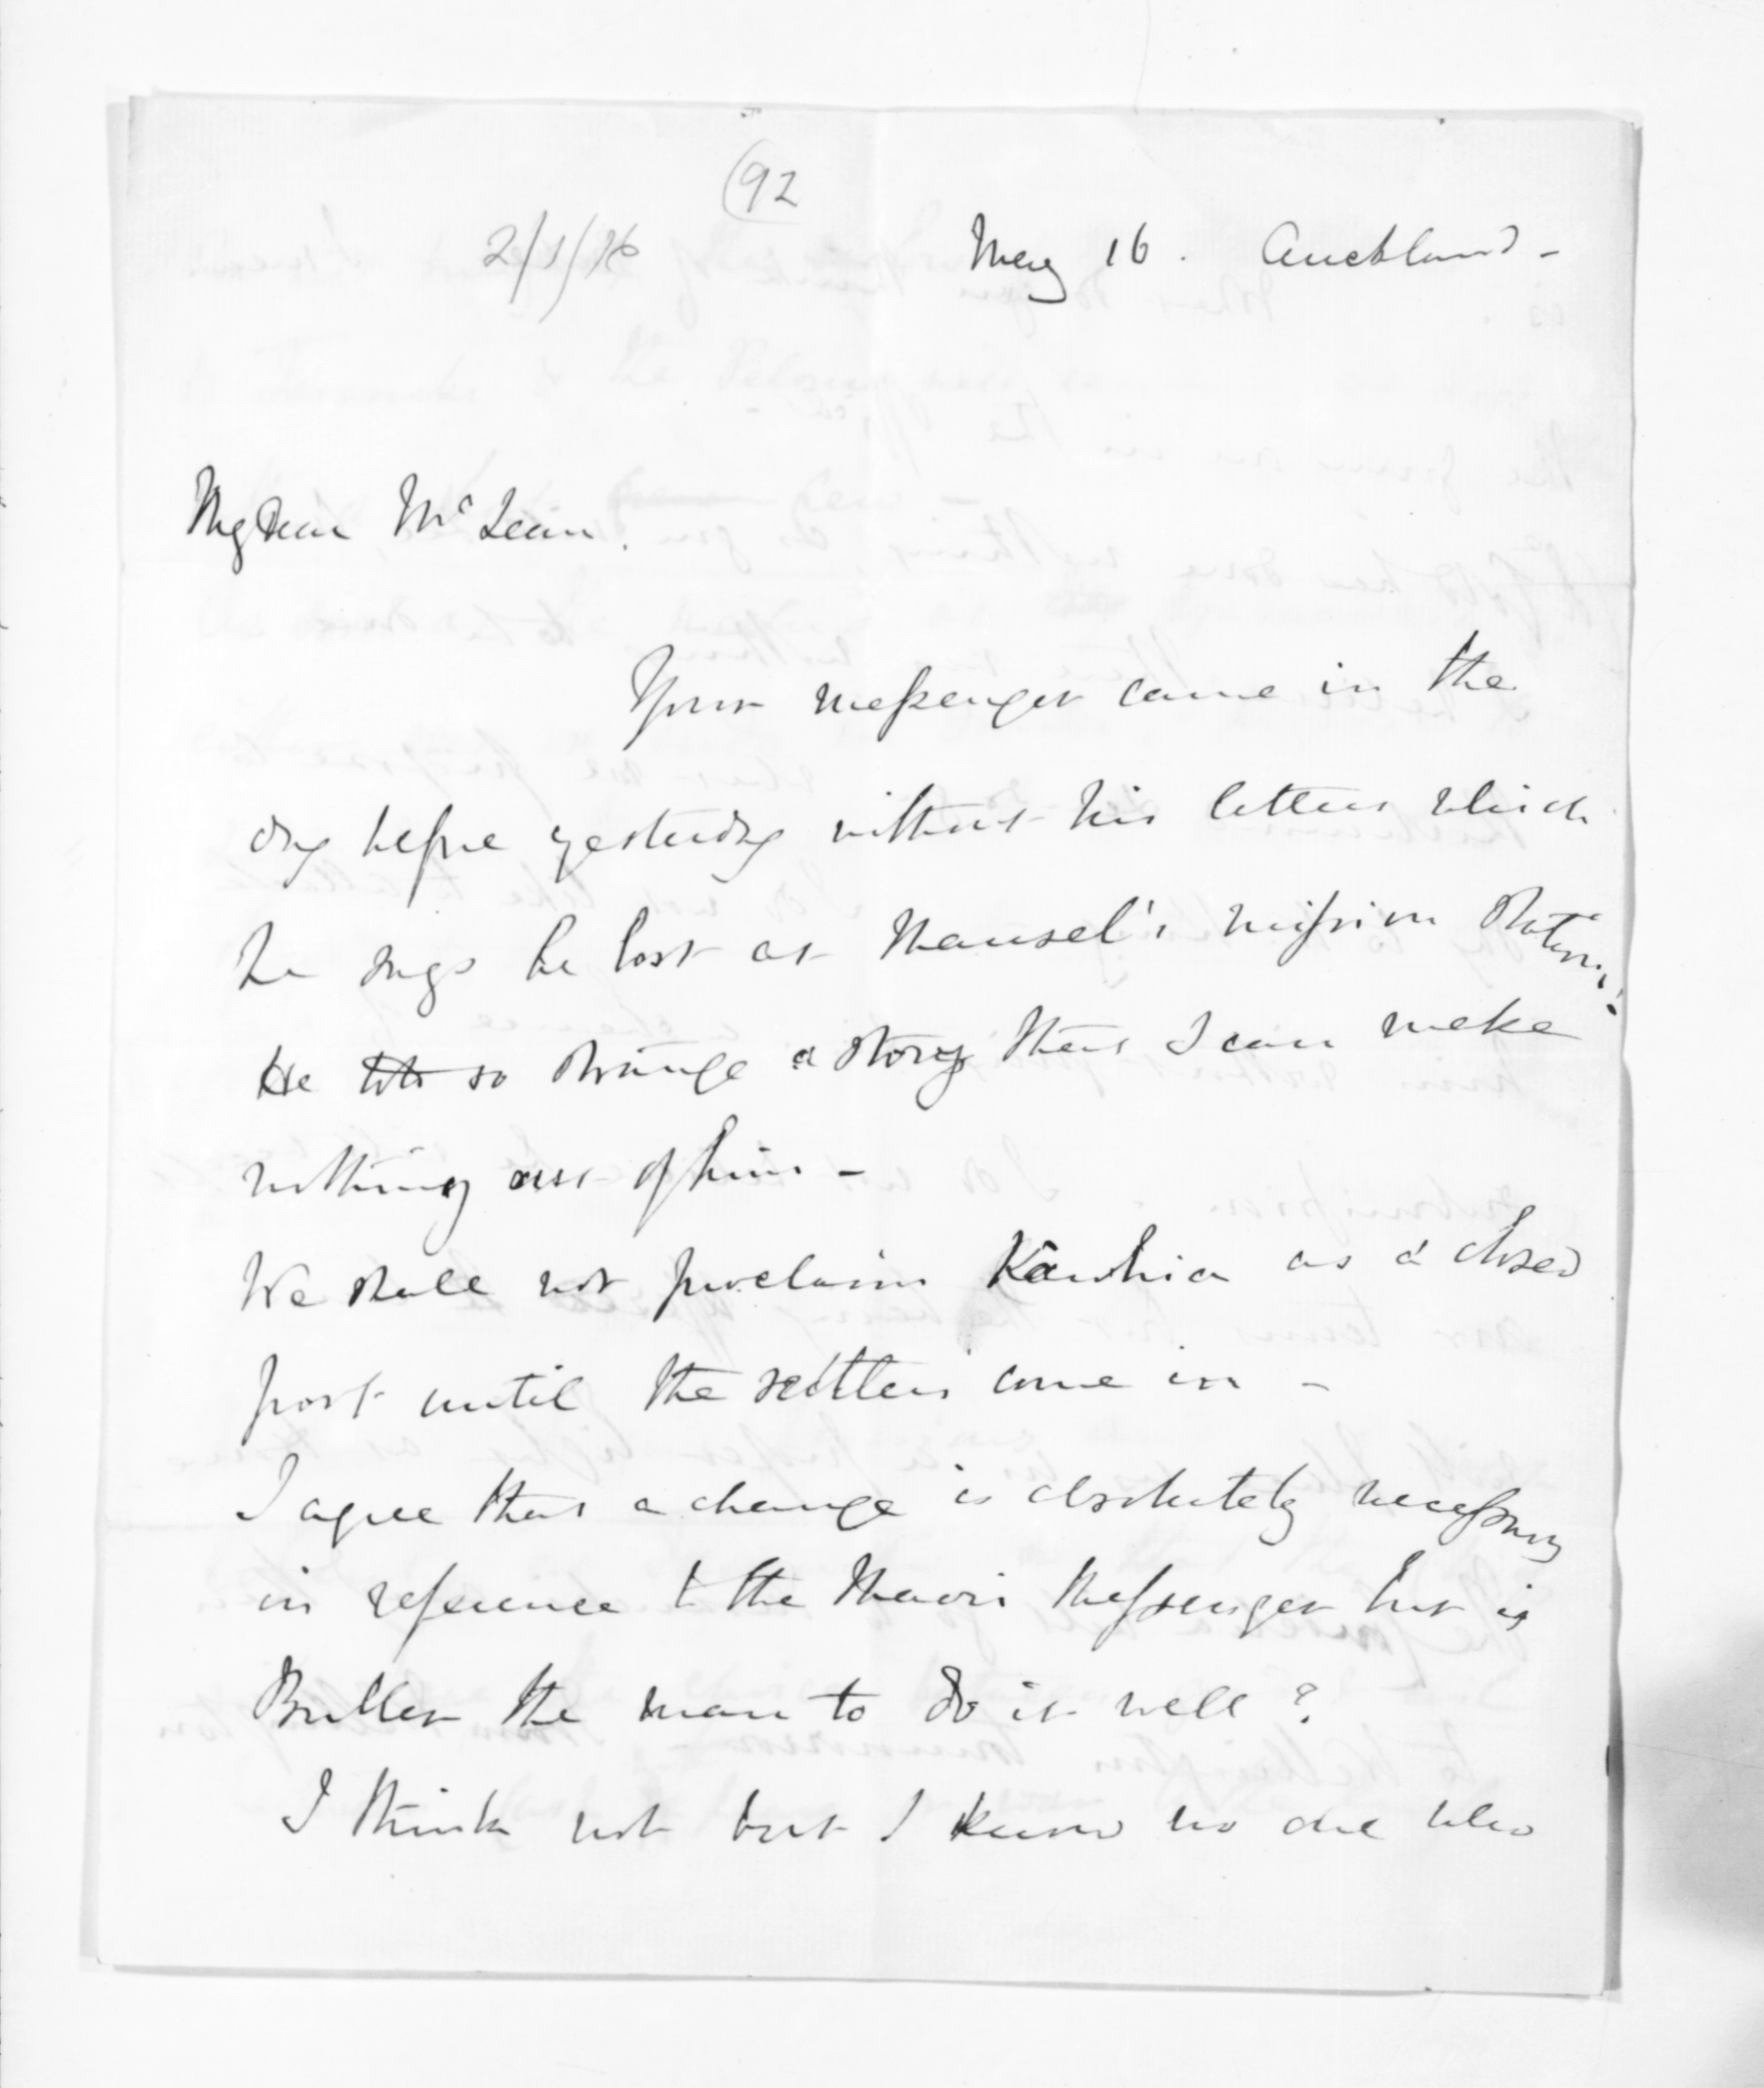 (92
May 16. Auckland -
My dear McLean.
Your messenger came in the
day before yesterday without his letters which
he says he lost at Maunsel's mission Station!
He tells so strange a story that I can make
nothing out of him -
We shall not proclaim Kawhia as a closed
port until the settlers come in -
I agree that a change is absolutely necessary
in reference to the Maori Messenger but is
Buller the man to do it well?
I think not but I know no one who